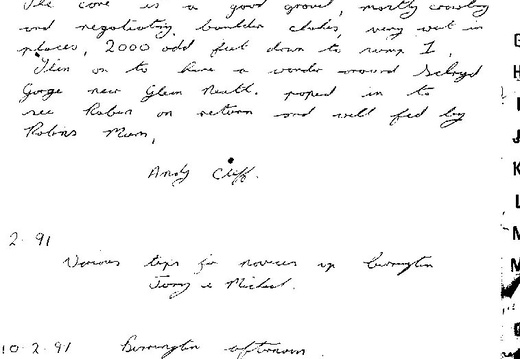 The cave is a good grovel, mostly crawling
and negotiating boulder chokes, very wet in
places, 2000 odd feet down to sump 1,
Then on to have a wander around
Gorge near Glynn Neath. roped in to
see Robin on return and well fed by
Robins Mum,
Andy Cliff.
2. 91
Various trips for novices up Burrington
Tony & Michael.
10-2.91 Burrington afternoon
G
H
I
J
K
L
M